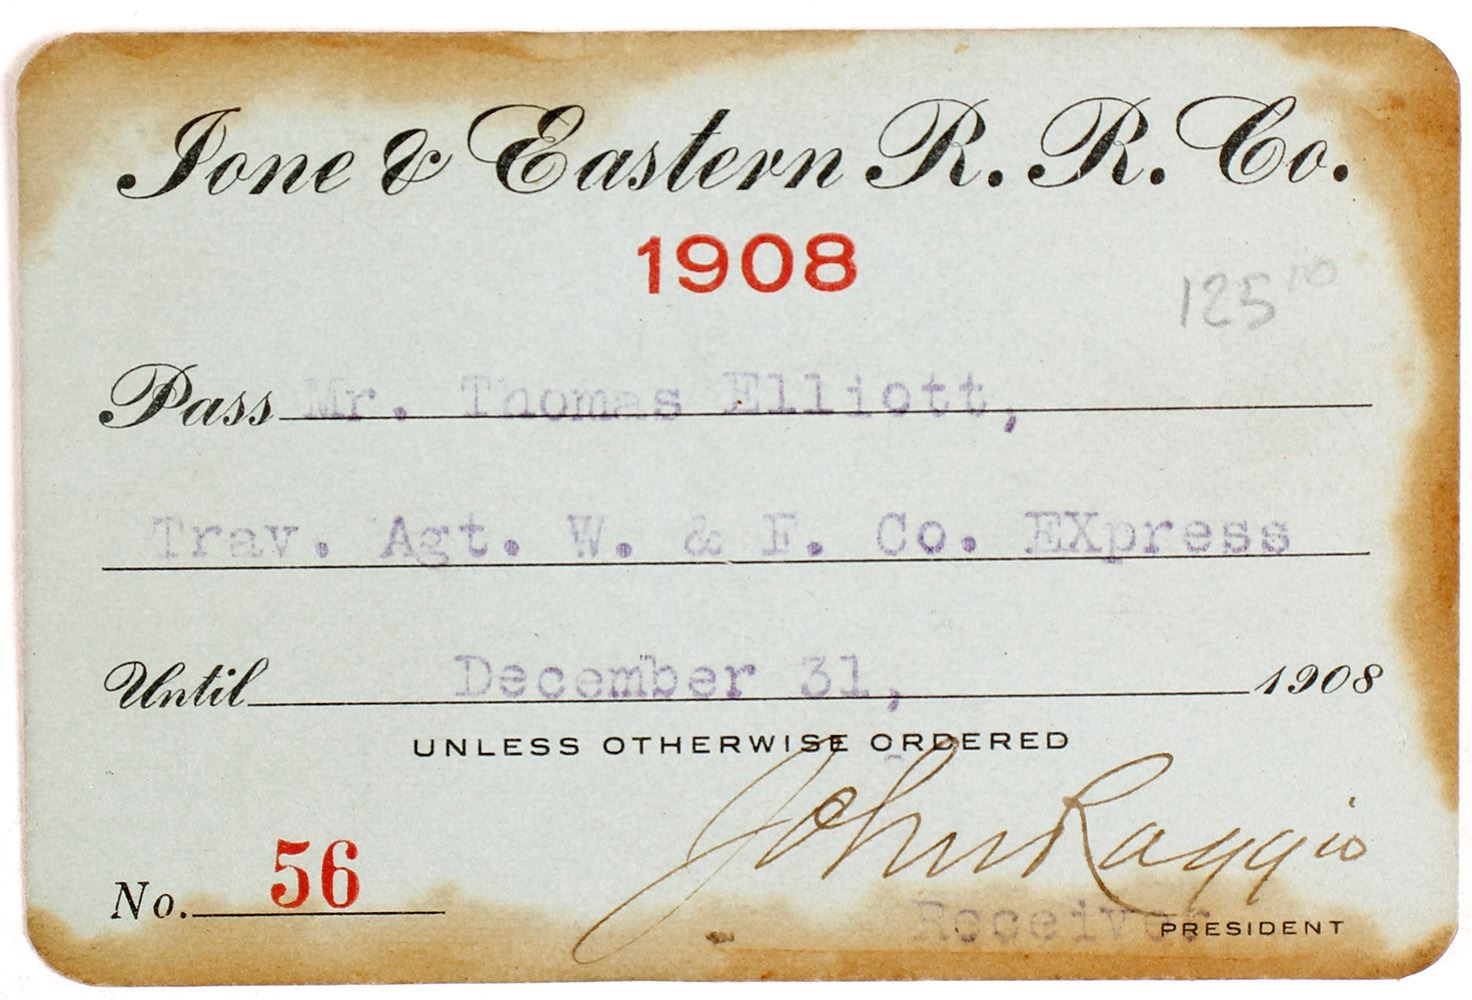 Ione & Eastern R. R. Co.
1908
125 00
Pass Mr. Thomas Elliott,
Trav. Agt. W. & F. Co. EXpress
Until December 31, 1908
UNLESS OTHERWISE ORDERED
John Raggio
No. 56
Receiver PRESIDENT